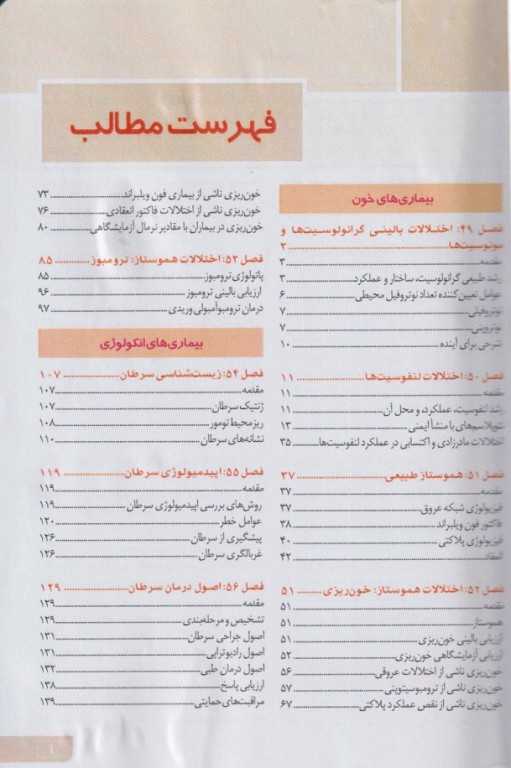 فهرست مطالب
بیماری‌های خون
فصل ۴۹: اختلالات بالینی گرانولوسیت‌ها و
مونوسیت‌ها ۲
مقدمه ۳
رشد طبیعی گرانولوسیت، ساختار و عملکرد ۳
عوامل تعیین‌کننده تعداد نوتروفیل محیطی ۶
نوتروفیلی ۷
نوتروپنی ۷
شرحی برای آینده ۱۰
فصل ۵۰: اختلالات لنفوسیت‌ها ۱۱
مقدمه ۱۱
رشد لنفوسیت، عملکرد، و محل آن ۱۱
نئوپلاسم‌های با منشأ ایمنی ۱۳
اختلالات مادرزادی و اکتسابی در عملکرد لنفوسیت‌ها ۳۵
فصل ۵۱: هموستاز طبیعی ۳۷
مقدمه ۳۷
فیزیولوژی شبکه عروق ۳۷
فاکتور فون ویلبراند ۳۸
فیزیولوژی پلاکتی ۴۰
انعقاد ۴۲
فصل ۵۲: اختلالات هموستاز: خون‌ریزی ۵۱
مقدمه ۵۱
هموستاز ۵۱
ارزیابی بالینی خون‌ریزی ۵۱
ارزیابی آزمایشگاهی خون‌ریزی ۵۲
خون‌ریزی ناشی از اختلالات عروقی ۵۶
خون‌ریزی ناشی از ترومبوسیتوپنی ۵۷
خون‌ریزی ناشی از نقص عملکرد پلاکتی ۶۷
خون‌ریزی ناشی از بیماری فون ویلبراند ۷۳
خون‌ریزی ناشی از اختلالات فاکتور انعقادی ۷۶
خون‌ریزی در بیماران با مقادیر نرمال آزمایشگاهی ۸۰
فصل ۵۳: اختلالات هموستاز: ترومبوز ۸۵
پاتولوژی ترومبوز ۸۵
ارزیابی بالینی ترومبوز ۹۶
درمان ترومبوآمبولی وریدی ۹۷
بیماری‌های انکولوژی
فصل ۵۴: زیست‌شناسی سرطان ۱۰۷
مقدمه ۱۰۷
ژنتیک سرطان ۱۰۷
ریزمحیط تومور ۱۰۸
نشانه‌های سرطان ۱۱۰
فصل ۵۵: اپیدمیولوژی سرطان ۱۱۹
مقدمه ۱۱۹
روش‌های بررسی اپیدمیولوژی سرطان ۱۱۹
عوامل خطر ۱۲۰
پیشگیری از سرطان ۱۲۶
غربالگری سرطان ۱۲۶
فصل ۵۶: اصول درمان سرطان ۱۲۹
مقدمه ۱۲۹
تشخیص و مرحله‌بندی ۱۲۹
اصول جراحی سرطان ۱۳۱
اصول رادیوتراپی ۱۳۱
اصول درمان طبی ۱۳۲
ارزیابی پاسخ ۱۳۸
مراقبت‌های حمایتی ۱۳۹